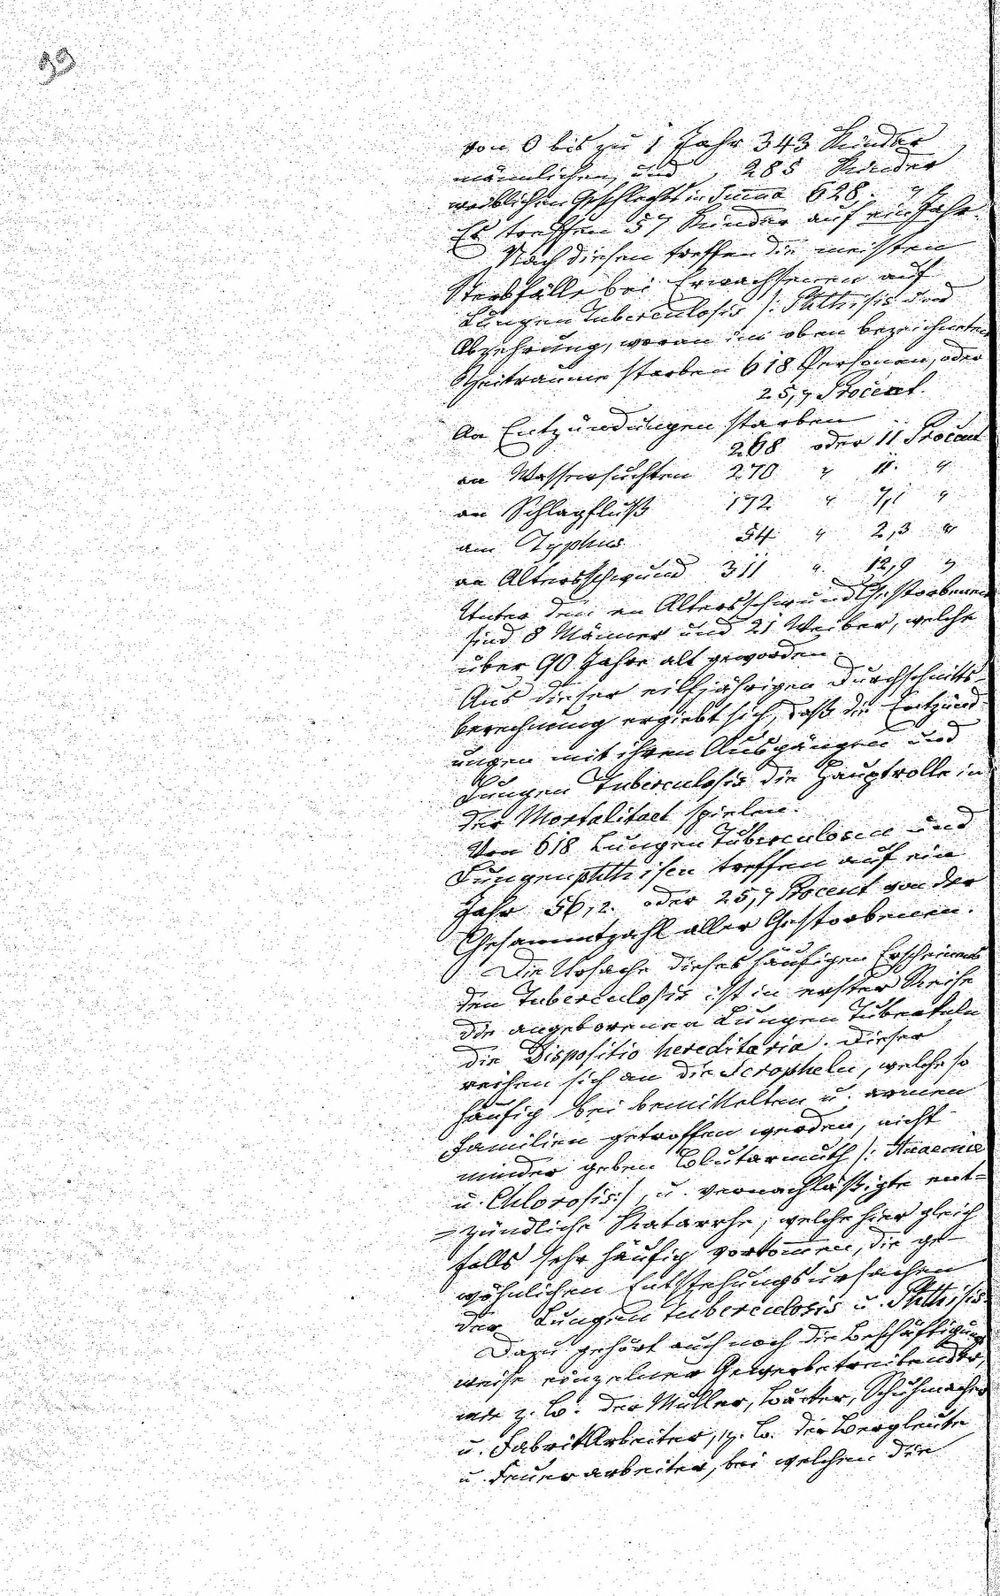 99
von 0 bis zu 1 Jahr 343 Kinder
männlichen, und 285 Kinder
weiblichen Geschlechts in Summa 628. "
Es treffen 57 Kinder auf ein Jahr.
Nach diesen treffen die meisten
Sterbfälle bei Erwachsenen auf
Lungen Tuberculosis /: Phthisis und
Abzehrung, woran im oben bezeichneten
Zeitraume starben 618 Personen, oder
25,7 Procent.
An Entzündungen starben
268 oder 11 Procent
an Wassersuchten 270 " 11. "
an Schlagfluß 172 " 7,1 "
am Typhus 54 " 2,3 "
an Altersschwund 311 " 12,9 "
Unter den an Altersschwund Gestorbenen
sind 8 Männer und 21 Weiber, welche
über 90 Jahre alt geworden.
Aus dieser eilfjährigen Durchschnitts-
berechnung ergiebt sich, daß die Entzünd-
ungen mit ihren Ausgängen und
Lungen Tuberculosis die Hauptrolle in
der Mortalitaet spielen.
Von 618 Lungen Tuberculosen und
Lungenphthisen treffen auf ein
Jahr 56,2. oder 25,7 Procent von der
Gesammtzahl aller Gestorbenen.
Die Ursache dieses häufigen Erscheinens
der Tuberculosis ist in erster Reihe
die angeborenen Lungen Tuberkeln
die Dispositio hereditaria. Dieser
reihen sich an die Scropheln, welche so
häufig bei bemittelten u. armen
Familien getroffen werden, nicht
minder geben Blutarmuth /: Anaemie
u. Chlorosis:/, u. vernachläßigte ent-
=zündliche Katarrhe, welche hier gleich
falls sehr häufig vorkommen, die ge-
wöhnlichen Entstehungsursachen
der Lungen Tuberculosis u. Phthisis.
Dazu gehört auch noch die Beschäftigungs
weise einzelner Gewerbetreibender,
wie z. B. der Müller, Bäcker, Schuhmacher
u. Fabrikarbeiter, z. B. der Bergleute
u. Feuerarbeiter, bei welchen die